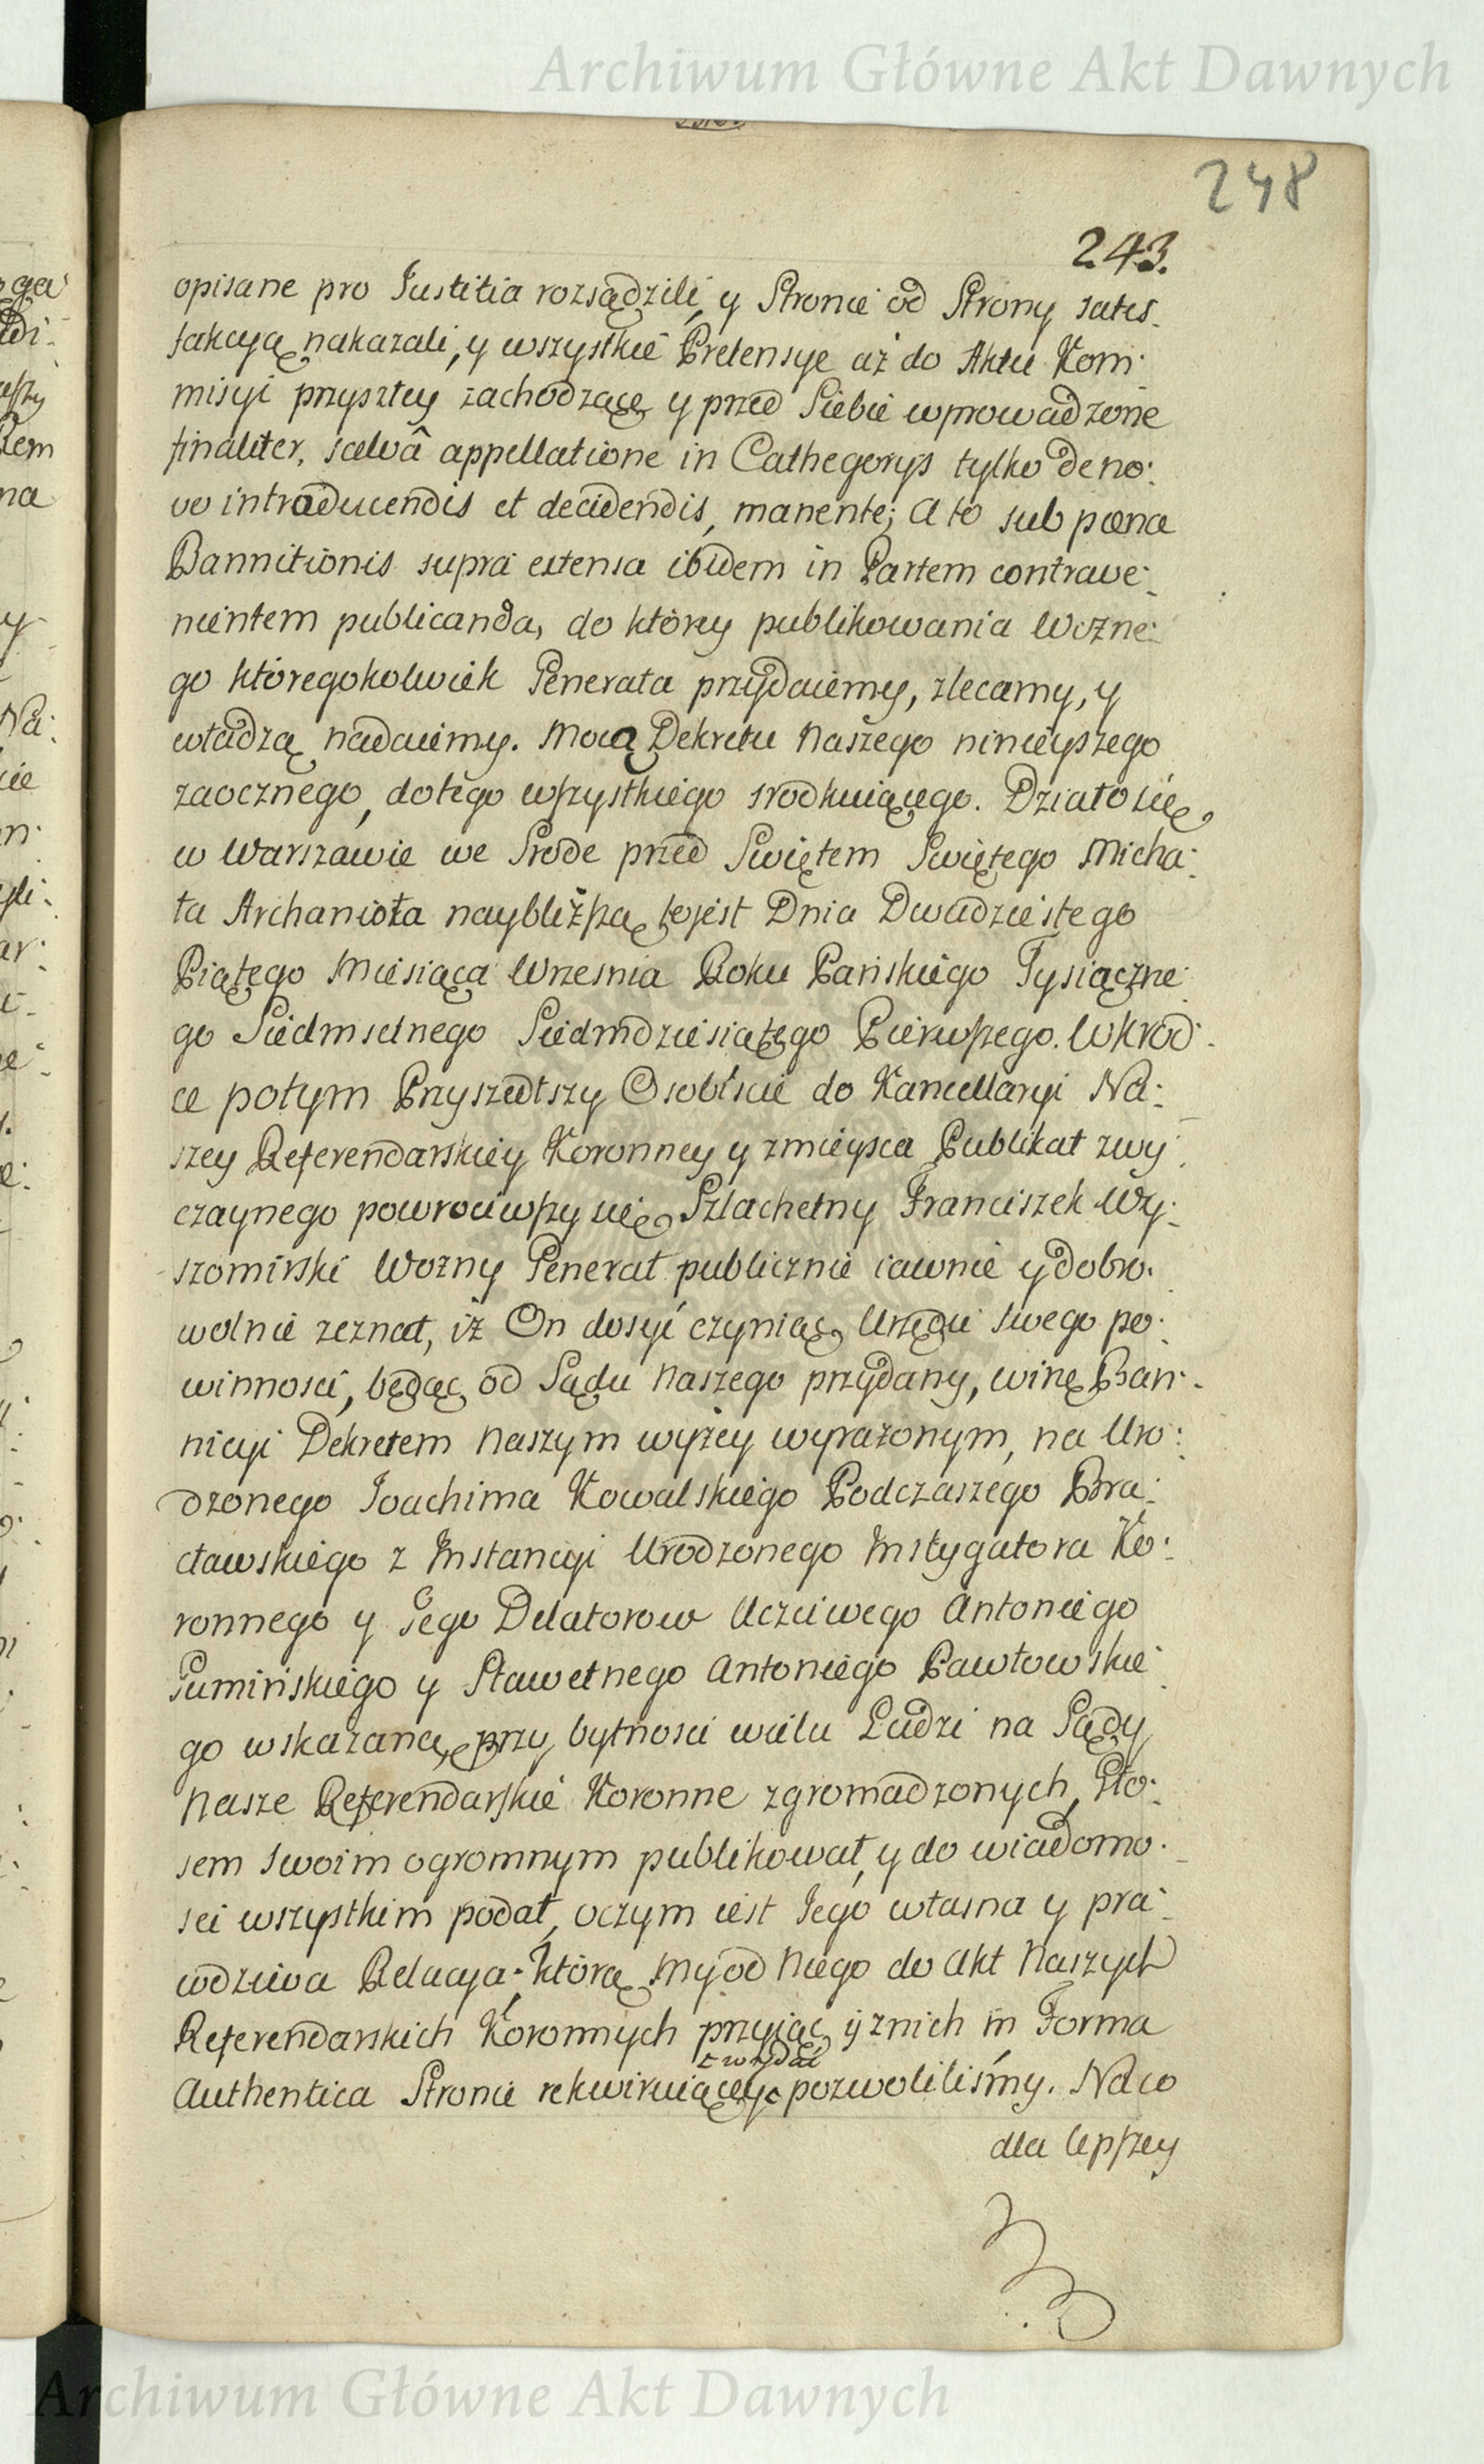 Archiwum Główne Akt Dawnych
248
243.
opisane pro Justitia rozsądzili, y Stronie od Strony satis-
fakcyą nakazali, y wszystkie Pretensye aż do Aktu Kom:
misyi przyszłey zachodzące y przed Siebie wprowadzone
finaliter, salvâ appellatione in Cathegorys tylko de no:
vo introducendis et decidendis, manente; a to sub pœna
Bannitionis supra extensa ibidem in Partem contrave:
nientem publicanda, do ktorey publikowania Wozne:
go ktoregokolwiek Generała przydaiemy, zlecamy, y
władzą nadaiemy. Mocą Dekretu Naszego ninieyszego
zaocznego, do tego wszystkiego srodkuiącego. Działo się
w Warszawie we Srode przed Swiętem Swiętego Micha:
ła Archanioła naybliższą to jest Dnia Dwudziestego
Piątego Miesiąca Wrzesnia Roku Pańskiego Tysiączne:
go Siedmsetnego Siedmdziesiątego Pierwszego. Wkrod:
ce potym Przyszedłszy Osobiscie do Kancellaryi Na:
szey Referendarskiey Koronney y zmieysca Publikat zwy:
czaynego powrociwszy się Szlachetny Franciszek Wy:
szomirski Wozny Generał publicznie iawnie y dobro:
wolnie zeznał, iż On dosyć czyniąc Urzędu swego po:
winnosci, będąc od Sądu Naszego przydany, winę Ban:
nicyi Dekretem Naszym wyżey wyrażonym, na Uro:
dzonego Joachima Kowalskiego Podczaszego Bra:
cławskiego z Instancyi Urodzonego Instygatora Ko:
ronnego y Jego Delatorow Uczciwego Antoniego
Gumińskiego y Sławetnego Antoniego Pawłowskie:
go wskazaną, przy bytnosci wielu Ludzi na Sądy
Nasze Referendarskie Koronne zgromadzonych, Gło:
sem swoim ogromnym publikował, y do wiadomo:
sci wszystkim podał, oczym iest Jego własna y pra:
wdziwa Relacya; którą My od Niego do Akt Naszych
Referendarskich Koronnych przyiąc, y znich in Forma
wydać
Authentica Stronie rekwiruiącey pozwoliliśmy. Na co
dla lepszey
Archiwum Główne Akt Dawnych